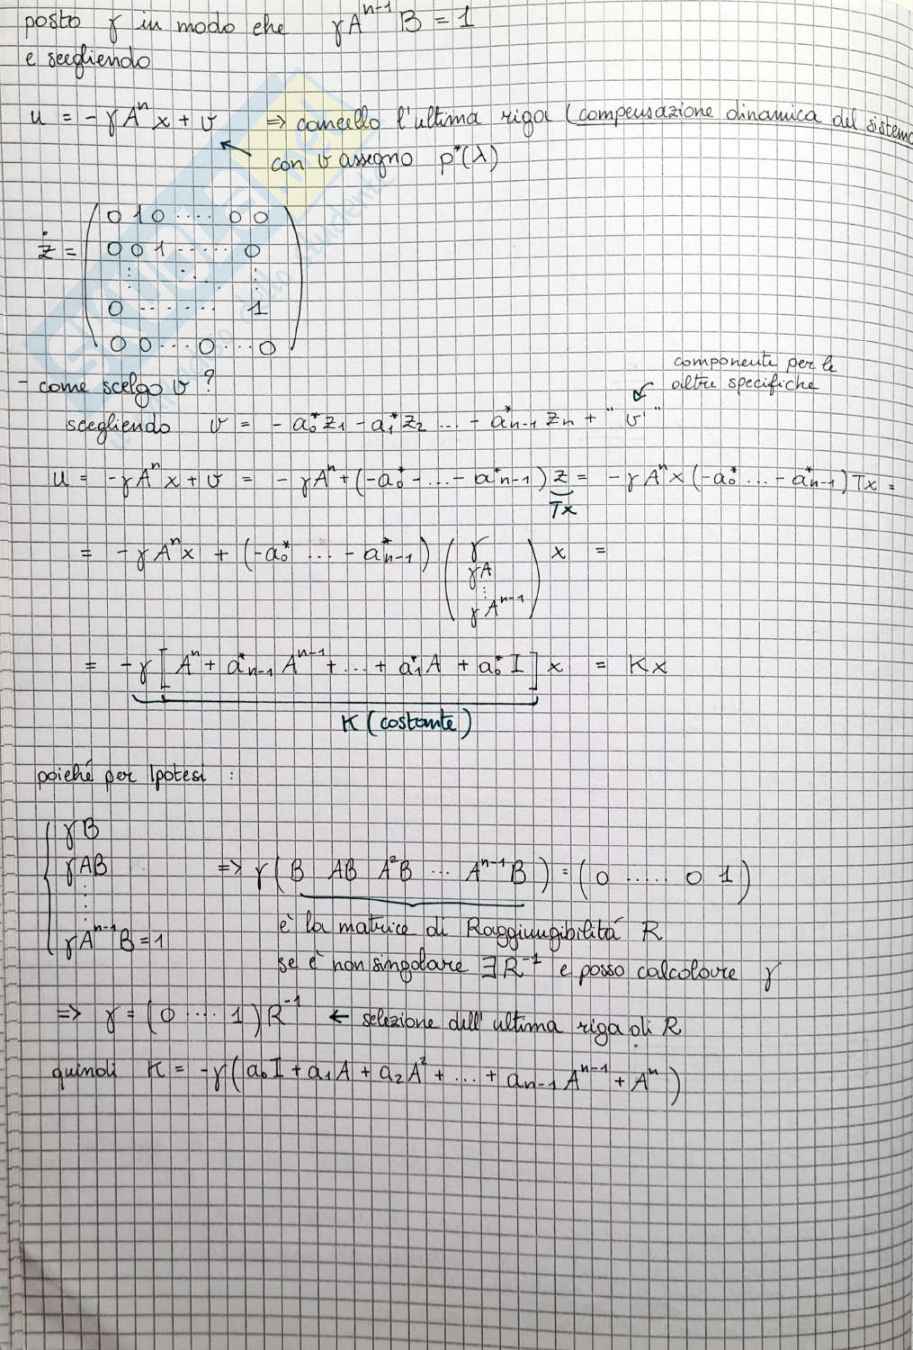 posto γ in modo che γAⁿ⁻¹B = 1
e scegliendo
u = -γAⁿx + v ⇒ cancello l'ultima riga (compensazione dinamica del sistema
con v assegno p*(λ)
ż = ( 0 1 0 .... 0 0
0 0 1 ..... 0
⋮ ⋱ ⋮
0 ....... 1
0 0 ... 0 ... 0 )
- come scelgo v?
componente per le
altre specifiche
scegliendo v = -a₀*z₁ - a₁*z₂ ... - a*ₙ₋₁ zₙ + "v'"
u = -γAⁿx + v = -γAⁿ + (-a₀* - ... - a*ₙ₋₁) z = -γAⁿx (-a₀* ... - a*ₙ₋₁) Tx =
Tx
= -γAⁿx + (-a₀* ... - a*ₙ₋₁) ( γ
γA
⋮
γAⁿ⁻¹ ) x =
= -γ [ Aⁿ + a*ₙ₋₁ Aⁿ⁻¹ + ... + a₁*A + a₀*I ] x = Kx
K (costante)
poiché per Ipotesi :
{ γB
γAB ⇒ γ ( B AB A²B ... Aⁿ⁻¹B ) = ( 0 ..... 0 1 )
⋮
γAⁿ⁻¹B = 1
è la matrice di Raggiungibilitá R
se è non singolare ∃R⁻¹ e posso calcolare γ
⇒ γ = (0 .... 1) R⁻¹ ← selezione dell'ultima riga di R
quindi K = -γ(a₀I + a₁A + a₂A² + ... + aₙ₋₁Aⁿ⁻¹ + Aⁿ)